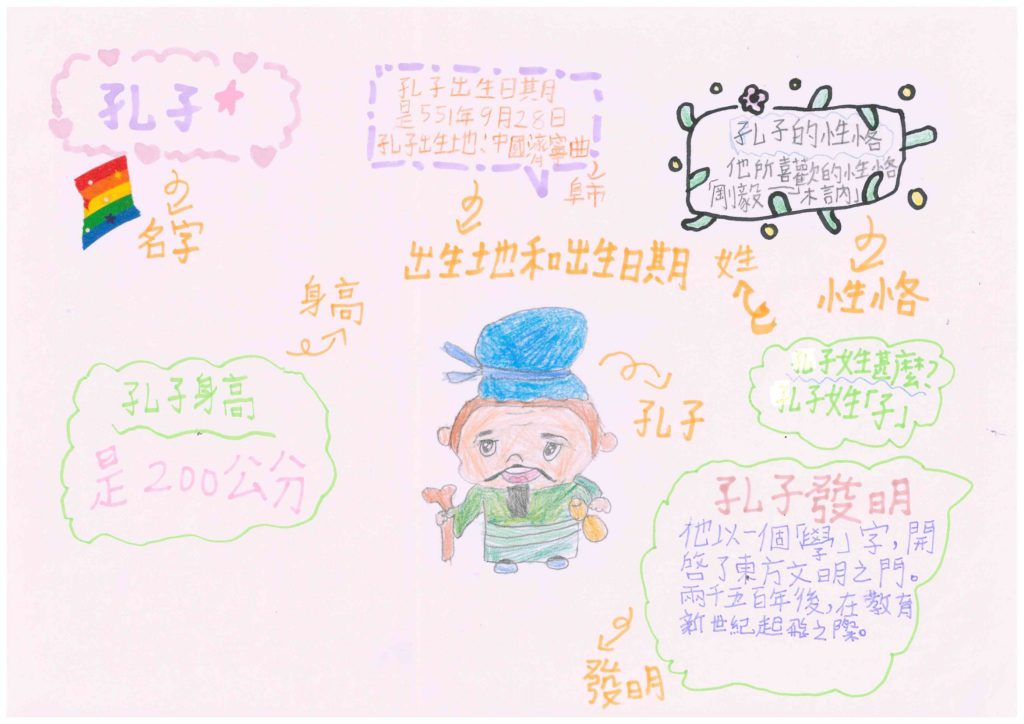 孔子
名字
孔子出生日期
是551年9月28日
孔子出生地：中國濟寧曲
阜市
出生地和出生日期
孔子的性格
他所喜歡的性格
「剛毅」「木訥」
性格
姓
孔子姓甚麼？
孔子姓「子」
身高
孔子身高
是200公分
孔子
孔子發明
他以一個「學」字，開
啓了東方文明之門。
兩千五百年後，在教育
新世紀起飛之際。
發明